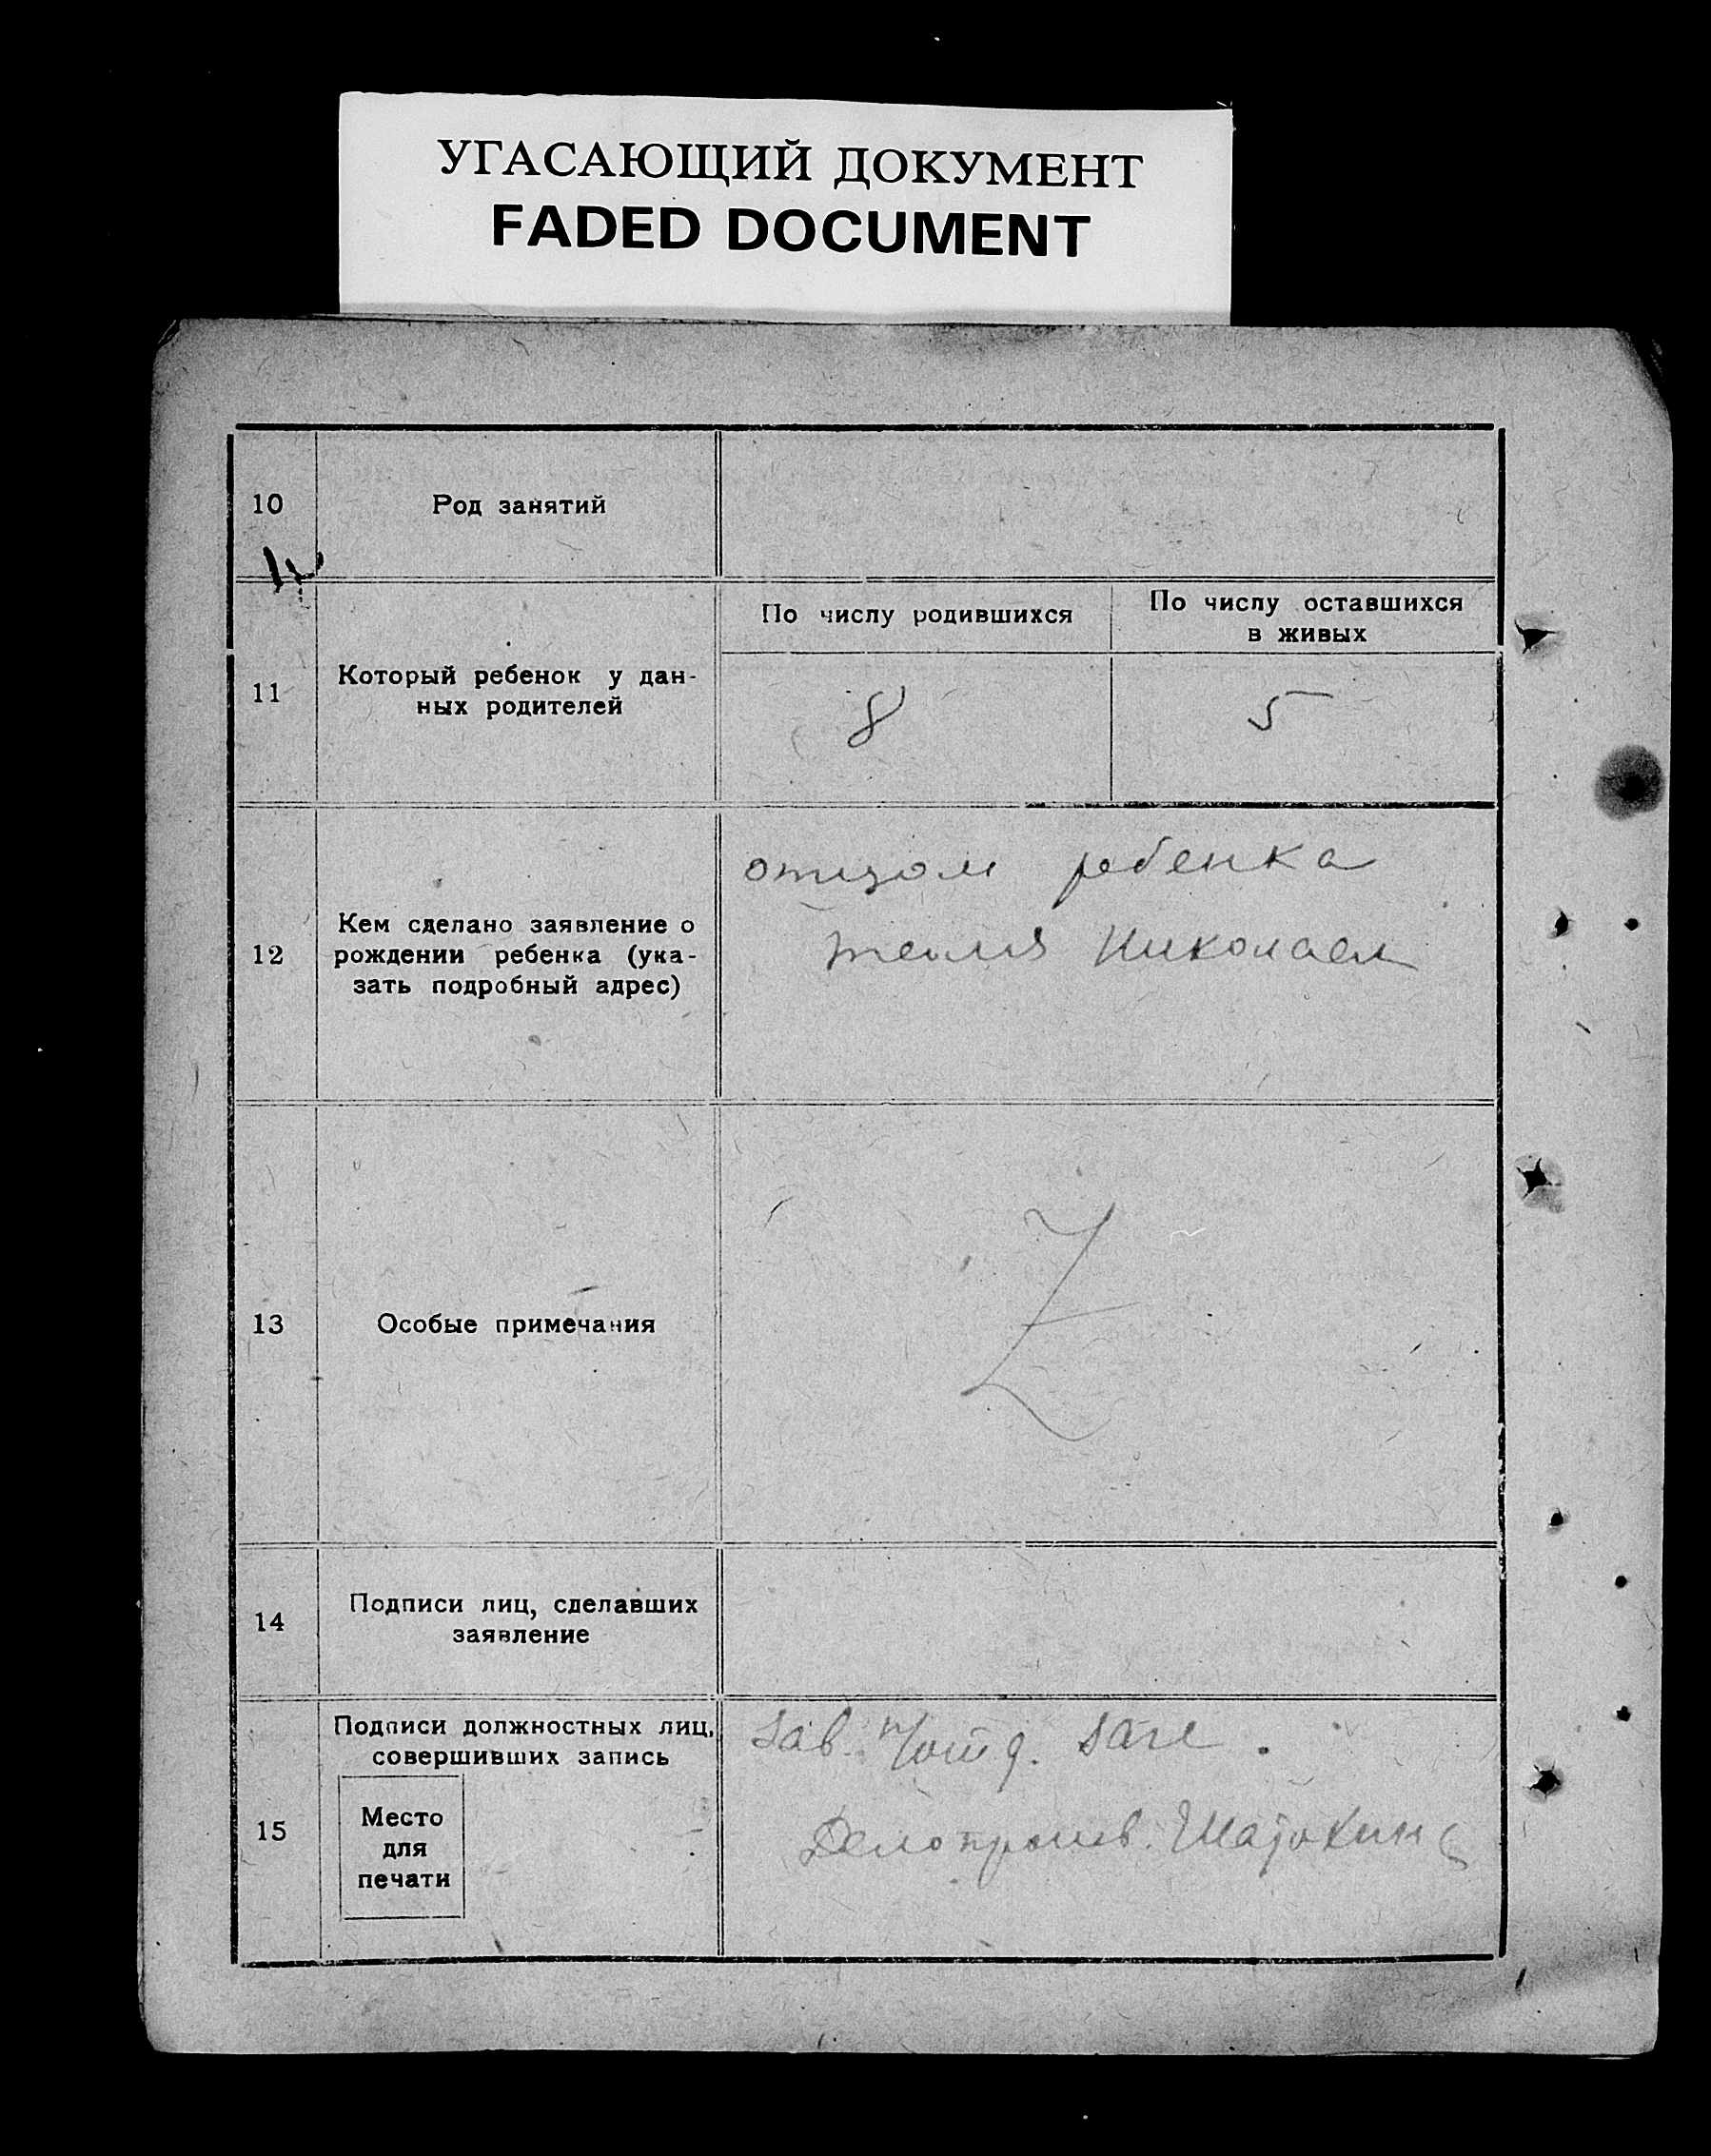 УГАСАЮЩИЙ ДОКУМЕНТ
FADED DOCUMENT
10
Род занятий
11
Который ребенок у дан-
ных родителей
По числу родившихся
По числу оставшихся
в живых
8
5
12
Кем сделано заявление о
рождении ребенка (ука-
зать подробный адрес)
отцом ребенка
Николаем
13
Особые примечания
Z
14
Подписи лиц, сделавших
заявление
15
Подписи должностных лиц,
совершивших запись
Место
для
печати
Зав.
Делопроизв.